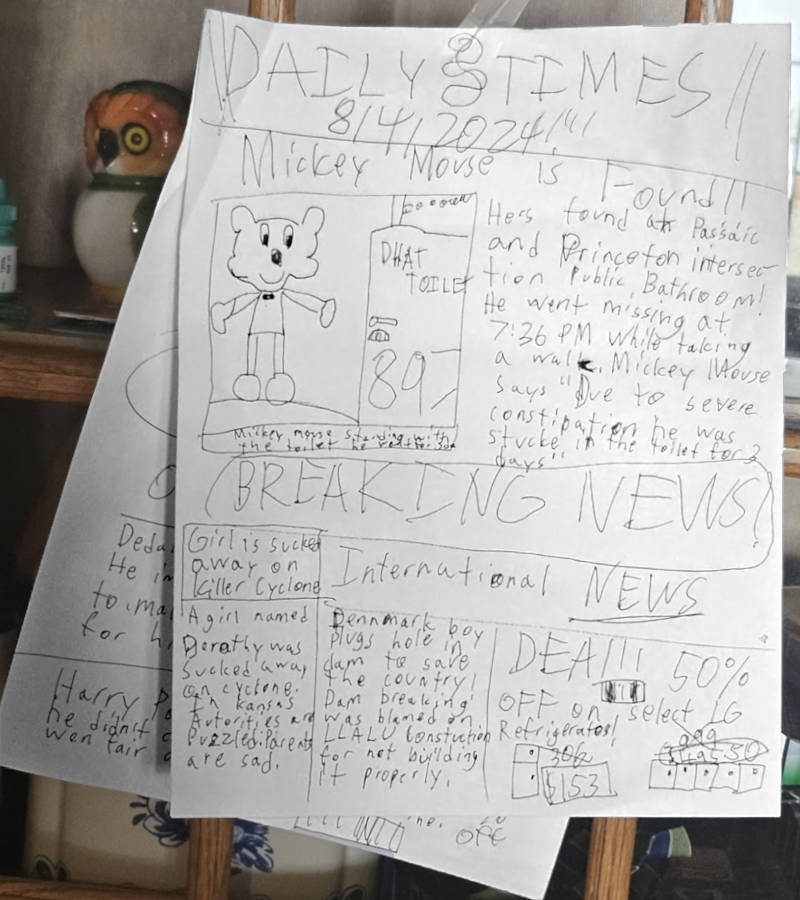 DAILY TIMES
8/4/2024!!!!
Mickey Mouse is Found!!
DHAT
TOILET
897
Mickey mouse standing with
the toilet he
Hers found at Passaic
and Princeton intersec
tion Public Bathroom!
He went missing at
7:36 PM while taking
a walk. Mickey Mouse
says "Due to severe
constipation he was
stucke in the toilet for 2
days"
BREAKING NEWS!
Girl is sucked
away on
Killer Cyclone
International NEWS
A girl named
Dorathy was
sucked away
on cyclone.
In kansas
Autorities are
Puzzled. Parents
are sad.
Dennmark boy
plugs hole in
dam to save
the country!
Dam breaking
was blamed on
LLALU Constuction
for not building
it properly.
DEA!!! 50%
OFF on select LG
Refrigerators!
306
$153
Deda
He in
to ma
for h
Harry Po
he didn't
won fair
OFF